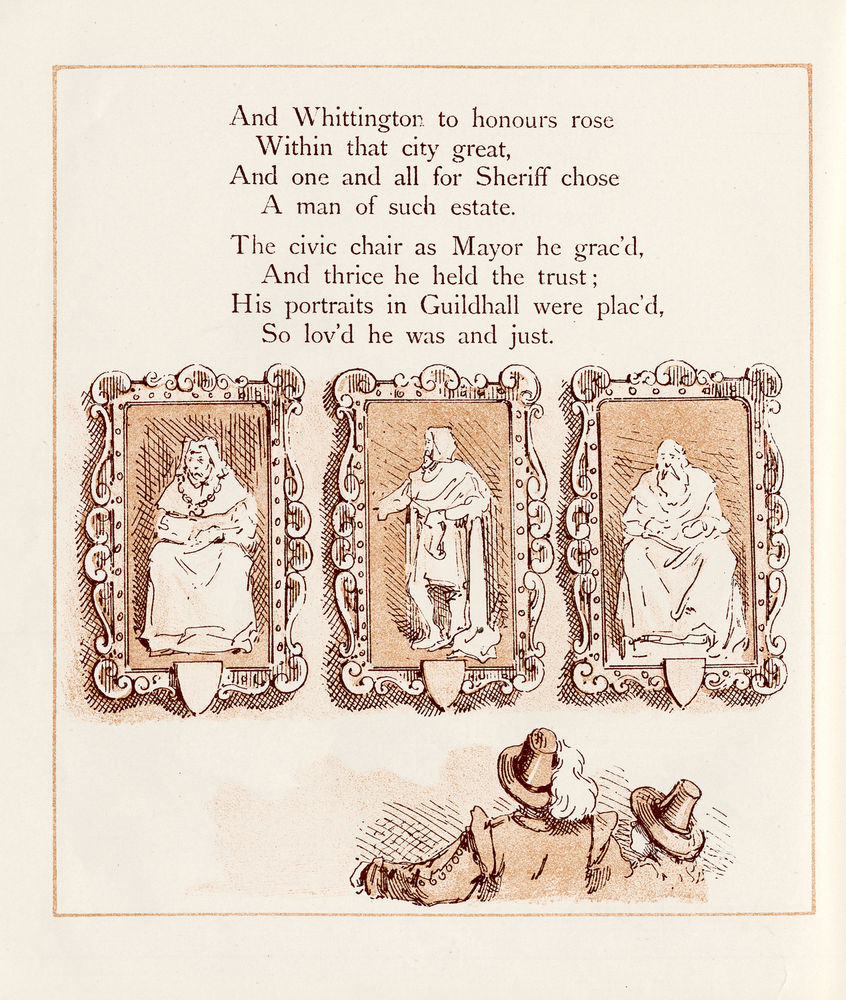 And Whittington to honours rose
Within that city great,
And one and all for Sheriff chose
A man of such estate.
The civic chair as Mayor he grac'd,
And thrice he held the trust;
His portraits in Guildhall were plac'd,
So lov'd he was and just.